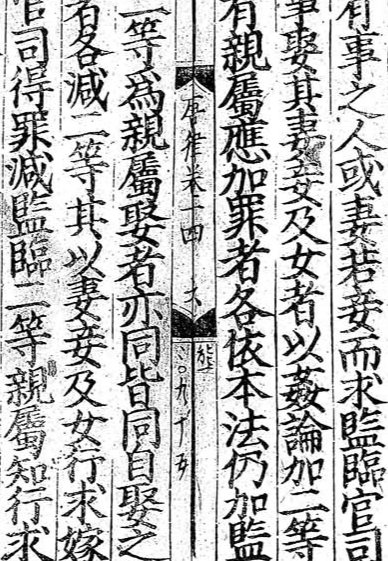 有事之人或妻若妾而求監臨官司
事娶其妻妾及女者以姦論加二等
有親屬應加罪者各依本法仍加監
唐律卷十四
一等爲親屬娶者亦同皆同自娶之
者各減二等其以妻妾及女行求嫁
官司得罪減監臨二等親屬知行求